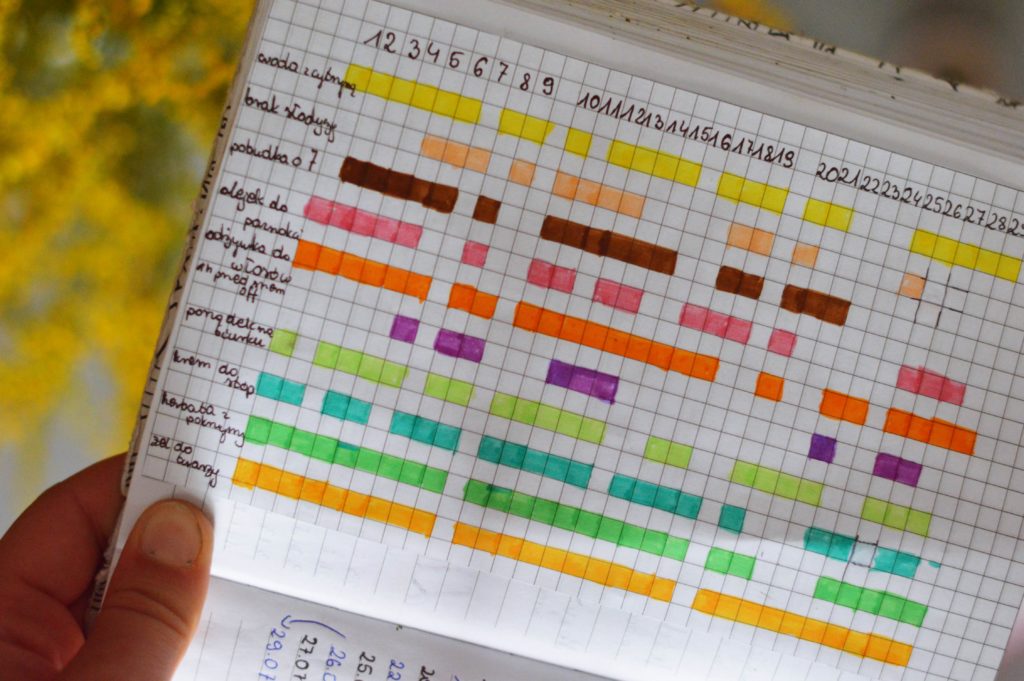 1 2 3 4 5 6 7 8 9 10 11 12 13 14 15 16 17 18 19 20 21 22 23 24 25 26 27 28 2
woda z cytryną
brak słodyczy
pobudka o 7
olejek do
paznokci
odżywka do
włosów
przed snem
off
porządek na
biurku
krem do
stóp
herbata z
pokrzywy
żel do
twarzy
29.07
27.07
26.0
25.
22